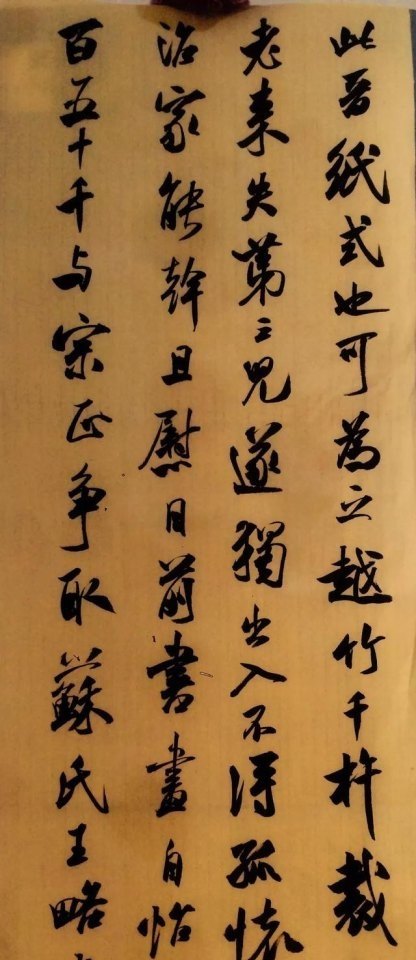 此晉紙式也可為之越竹千杵裁
老来失第三兒遂獨出入不得孤懷
治家能幹且慰目前書畫自怡
百五十千与宗正争取蘇氏王略